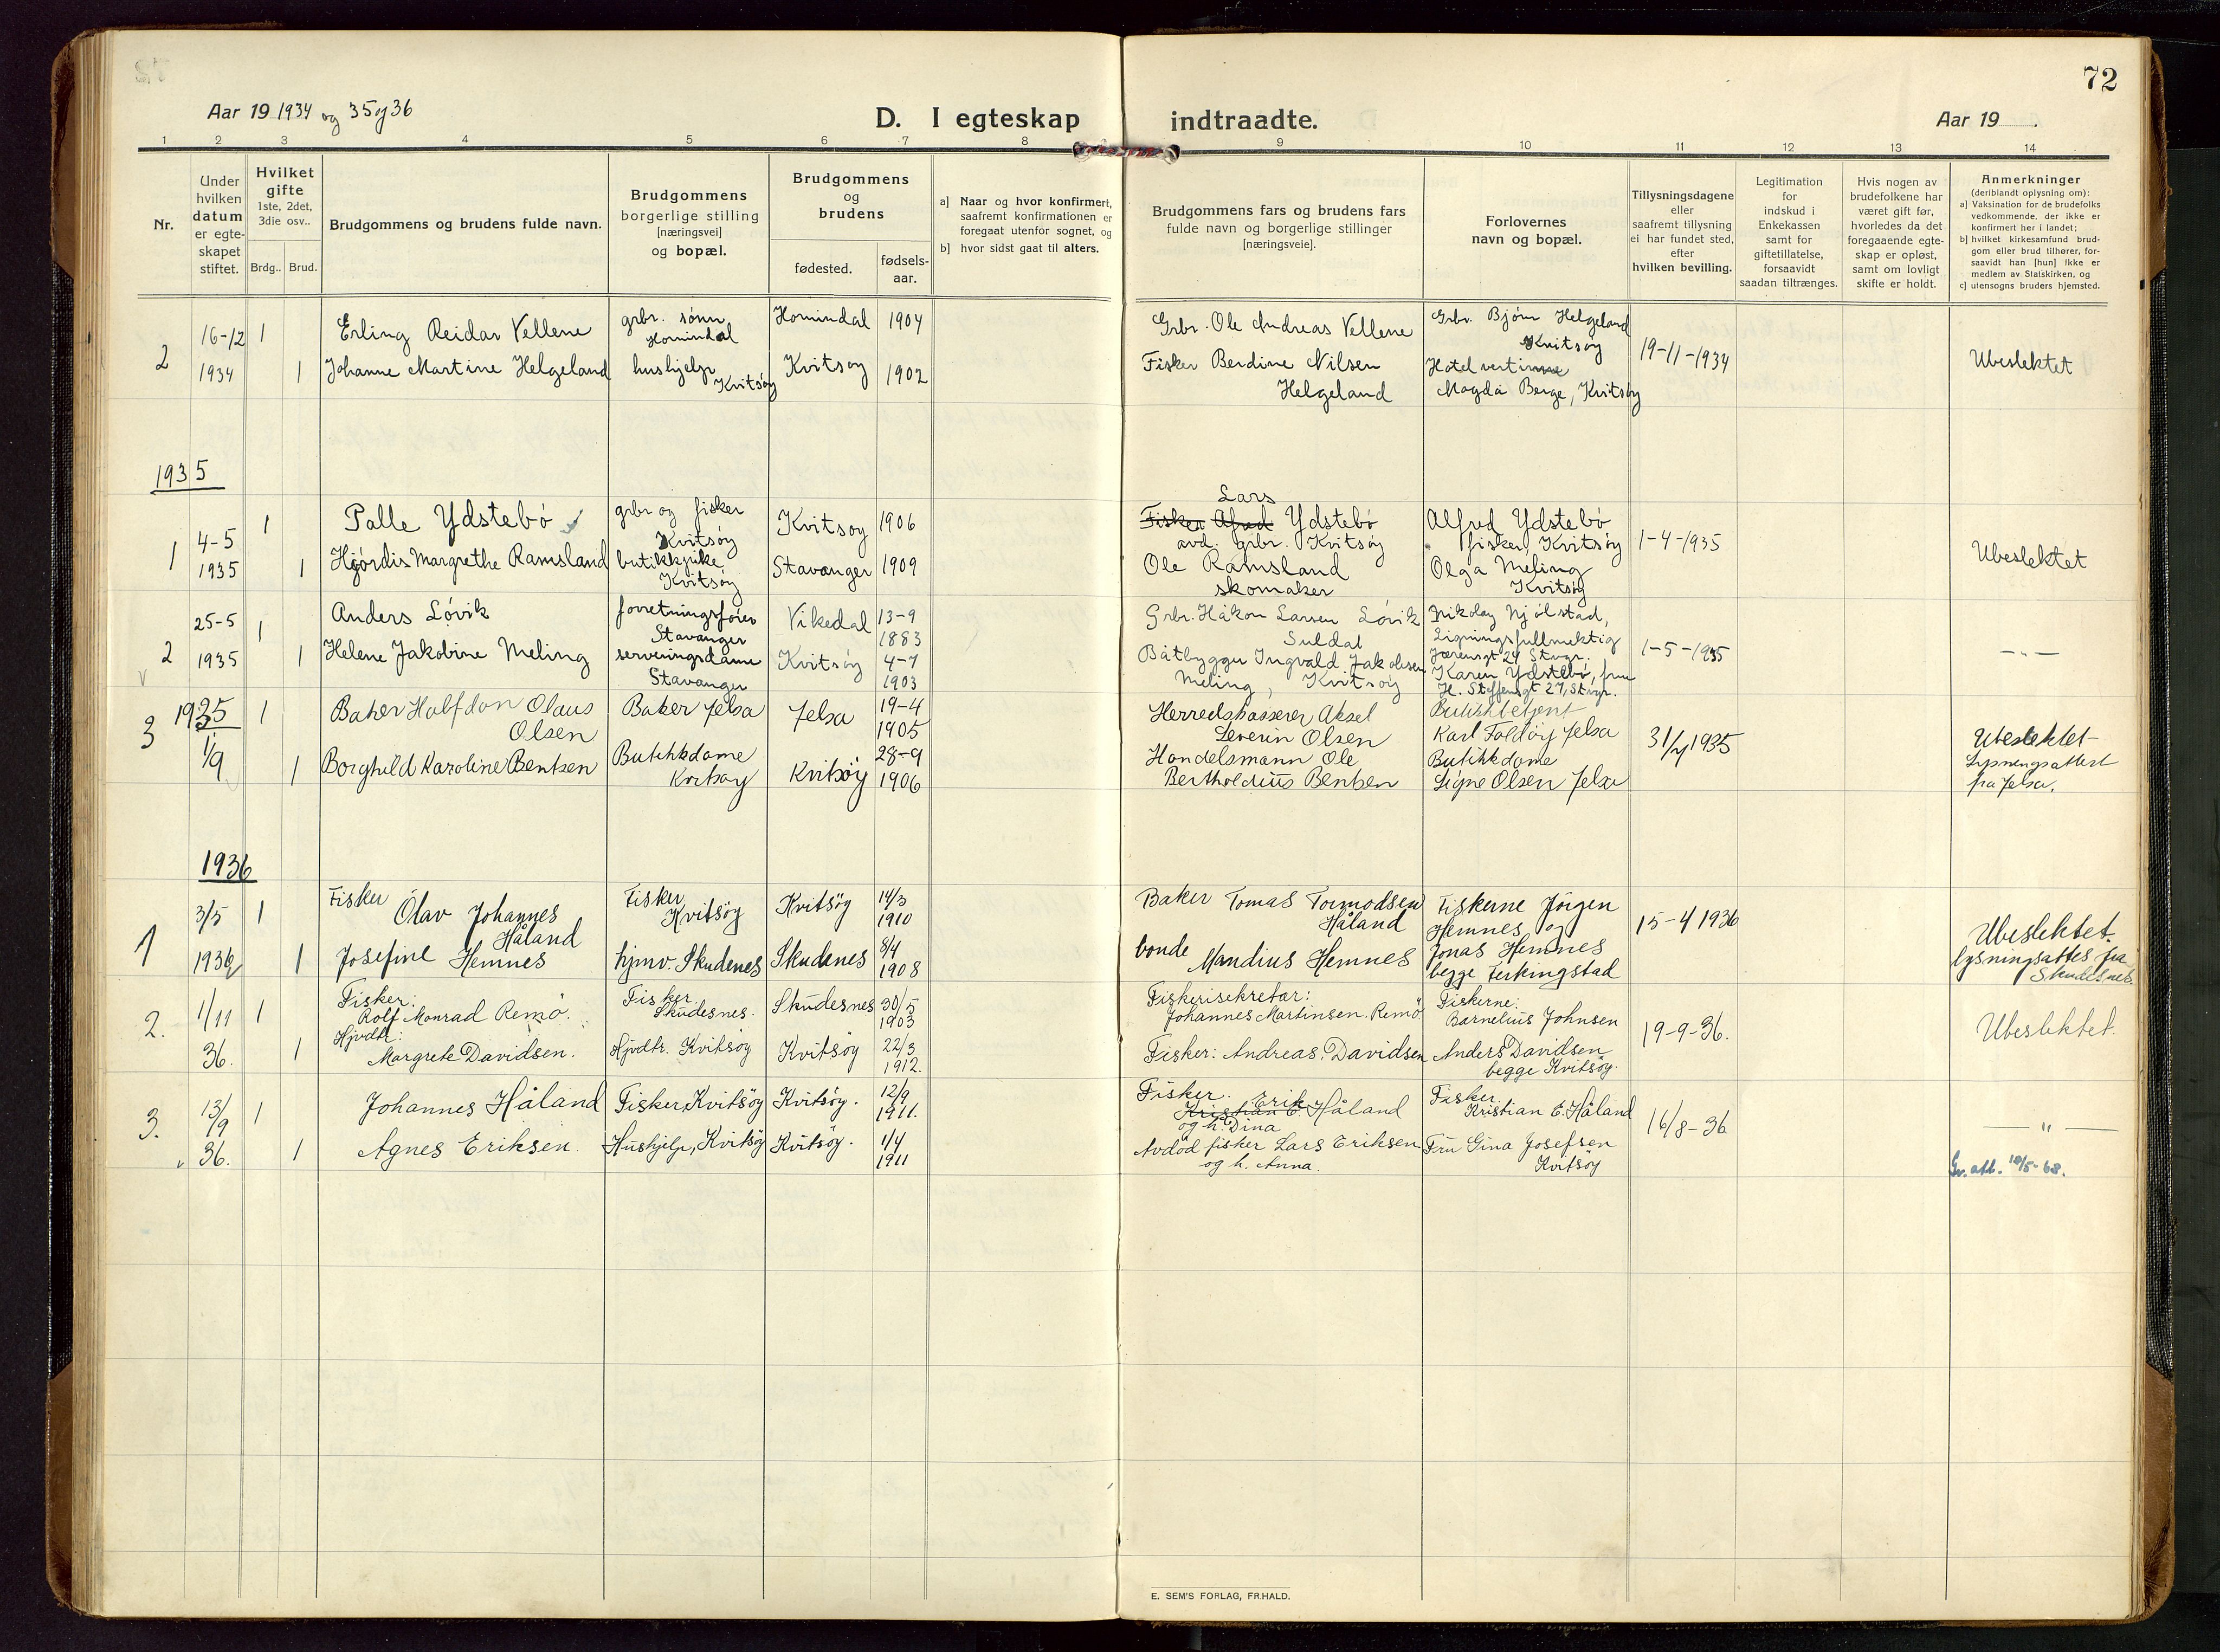 72
Aar 19 1934 og 35 og 36
D. I egteskap indtraadte.
Aar 19
1 2 3 4 5 6 7 8 9 10 11 12 13 14
Nr.
Under hvilken datum er egte-skapet stiftet.
Hvilket gifte 1ste, 2det, 3die osv..
Brdg.. Brud.
Brudgommens og brudens fulde navn.
Brudgommens borgerlige stilling [næringsvei] og bopæl.
Brudgommens og brudens
fødested. fødsels-aar.
a] Naar og hvor konfirmert, saafremt konfirmationen er foregaat utenfor sognet, og
b] hvor sidst gaat til alters.
Brudgommens fars og brudens fars fulde navn og borgerlige stillinger [næringsveie].
Forlovernes navn og bopæl.
Tillysningsdagene eller saafremt tillysning ei har fundet sted, efter hvilken bevilling.
Legitimation for indskud i Enkekassen samt for giftetillatelse, forsaavidt saadan tiltrænges.
Hvis nogen av brudefolkene har været gift før, hvorledes da det foregaaende egte-skap er opløst, samt om lovligt skifte er holdt.
Anmerkninger (deriblandt oplysning om):
a] Vaksination for de brudefolks vedkommende, der ikke er konfirmert her i landet;
b] hvilket kirkesamfund brud-gom eller brud tilhører, for-saavidt han [hun] ikke er medlem av Statskirken, og
c] utensogns bruders hjemsted.
2 16-12 1934 1 Erling Reidar Vellene grbr. sønn Hornindal Hornindal 1904
Grbr. Ole Andreas Vellene Grbr. Bjørn Helgeland Kvitsøy 19-11-1934 Ubeslektet
1 Johanne Martine Helgeland hushjelp Kvitsøy Kvitsøy 1902
Fisker Berdine Nilsen Helgeland Hotelvertinne Magda Berge, Kvitsøy
1935
1 4-5 1935 1 Palle Ydstebø grbr og fisker Kvitsøy Kvitsøy 1906
Lars
Fisker Alfred Ydstebø avd. grbr. Kvitsøy Alfred Ydstebø fisker Kvitsøy 1-4-1935 Ubeslektet
1 Hjørdis Margrethe Ramsland butikkpike Kvitsøy Stavanger 1909
Ole Ramsland skomaker Olga Meling Kvitsøy
2 25-5 1935 1 Anders Løvik forretningsfører Stavanger Vikedal 13-9 1883
Grbr. Håkon Larsen Løvik Suldal Nikolay Njølstad, Ligningsfullmektig Jærensgt 24 Stvgr. 1-5-1935 -"-
1 Helene Jakobine Meling serveringsdame Stavanger Kvitsøy 4-7 1903
Båtbygger Ingvald Jakobsen Meling, Kvitsøy Karen Ydstebø, frue H. Steffensgt 27, Stvgr.
3 1935 1/9 1 Baker Halfdan Olaus Olsen Baker Jelsa Jelsa 19-4 1905
Herredskasserer Aksel Severin Olsen Butikkbetjent Karl Foldøy Jelsa 31/7 1935 Ubeslektet Lysningsattest fra Jelsa.
1 Borghild Karoline Bentsen Butikkdame Kvitsøy Kvitsøy 28-9 1906
Handelsmann Ole Bertholdius Bentsen Butikkdame Signe Olsen Jelsa
1936
1 3/5 1936 1 Fisker Olav Johannes Håland Fisker Kvitsøy Kvitsöy 14/3 1910
Baker Tomas Tormodsen Håland Fiskerne Jörgen Hemnes og 15-4 1936 Ubeslektet.
1 Josefine Hemnes hjmv. Skudenes Skudenes 8/4 1908
bonde Mandius Hemnes Jonas Hemnes begge Ferkingstad lysningsattes fra Skudesnes
2. 1/11 36. 1 Fisker: Rolf Monrad Remö. Fisker Skudesnes. Skudesnes 30/5 1903
Fiskerisekretær: Johannes Martinsen Remö Fiskerne: Barnelius Johnsen 19-9-36. Ubeslektet.
1 Hjvdtr: Margrete Davidsen. Hjvdtr. Kvitsöy Kvitsöy 22/3 1912.
Fisker: Andreas Davidsen Anders Davidsen begge Kvitsöy.
3. 13/9 36. 1 Johannes Håland Fisker, Kvitsöy Kvitsöy. 12/9 1911.
Fisker. Erik Kristian E. Håland og h. Dina Fisker Kristian E. Håland 16/8-36 -"-
1 Agnes Eriksen. Hushjelp, Kvitsöy Kvitsöy. 1/4 1911
Avdöd fisker Lars Eriksen og h. Anna. Fru Gina Josefsen Kvitsöy
E. SEM'S FORLAG, FR.HALD.